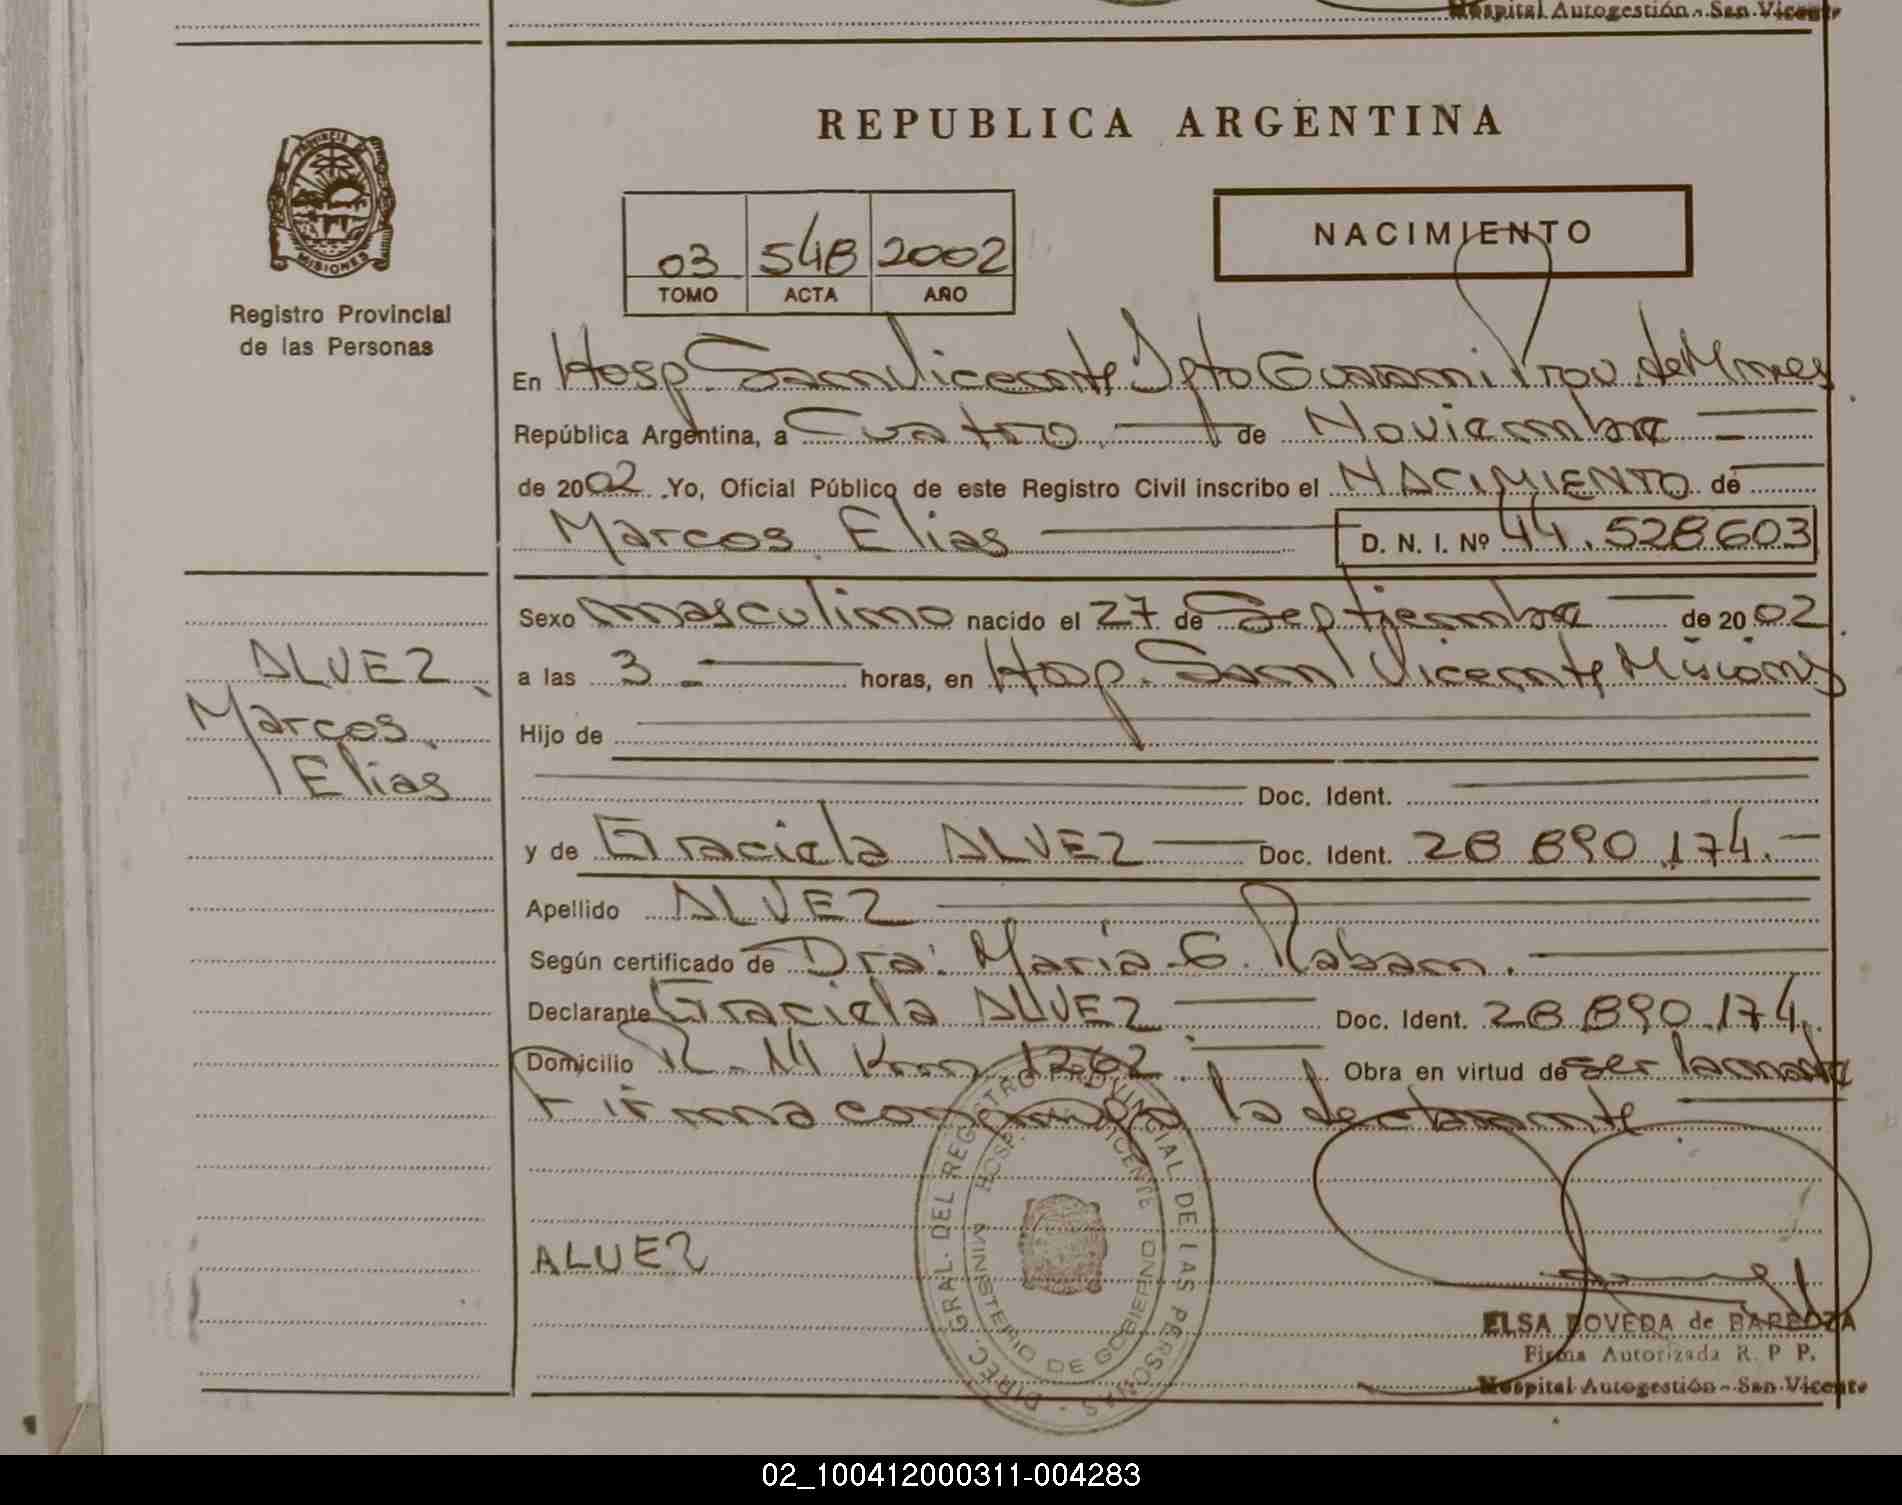 Hospital Autogestión - San Vicente
PROVINCIA DE
MISIONES
Registro Provincial
de las Personas
REPUBLICA ARGENTINA
03 548 2002
TOMO ACTA AÑO
NACIMIENTO
En Hosp. San Vicente, Dpto Guarani Prov. de Mnes
República Argentina, a Cuatro de Noviembre
de 2002 Yo, Oficial Público de este Registro Civil inscribo el NACIMIENTO de
Marcos Elias D. N. I. Nº 44.528603
Sexo masculino nacido el 27 de Septiembre de 2002
a las 3 horas, en Hosp. San Vicente Misiones
Hijo de
Doc. Ident.
y de Graciela ALVEZ Doc. Ident. 28 890 174.
Apellido ALVEZ
Según certificado de Dra: Maria G. Raban.
Declarante Graciela ALVEZ Doc. Ident. 28 890 174.
Domicilio R. 14 Km 1262 Obra en virtud de ser la madre
Firma conmigo la declarante
ALVEZ
Marcos
Elias
ALUEZ
DIREC. GRAL. DEL REGISTRO PROVINCIAL DE LAS PERSONAS -
HOSP. VICENTE
MINISTERIO DE GOBIERNO
ELSA DOVEDA de BARBOZA
Firma Autorizada R. P P.
Hospital Autogestión - San Vicente
02_100412000311-004283